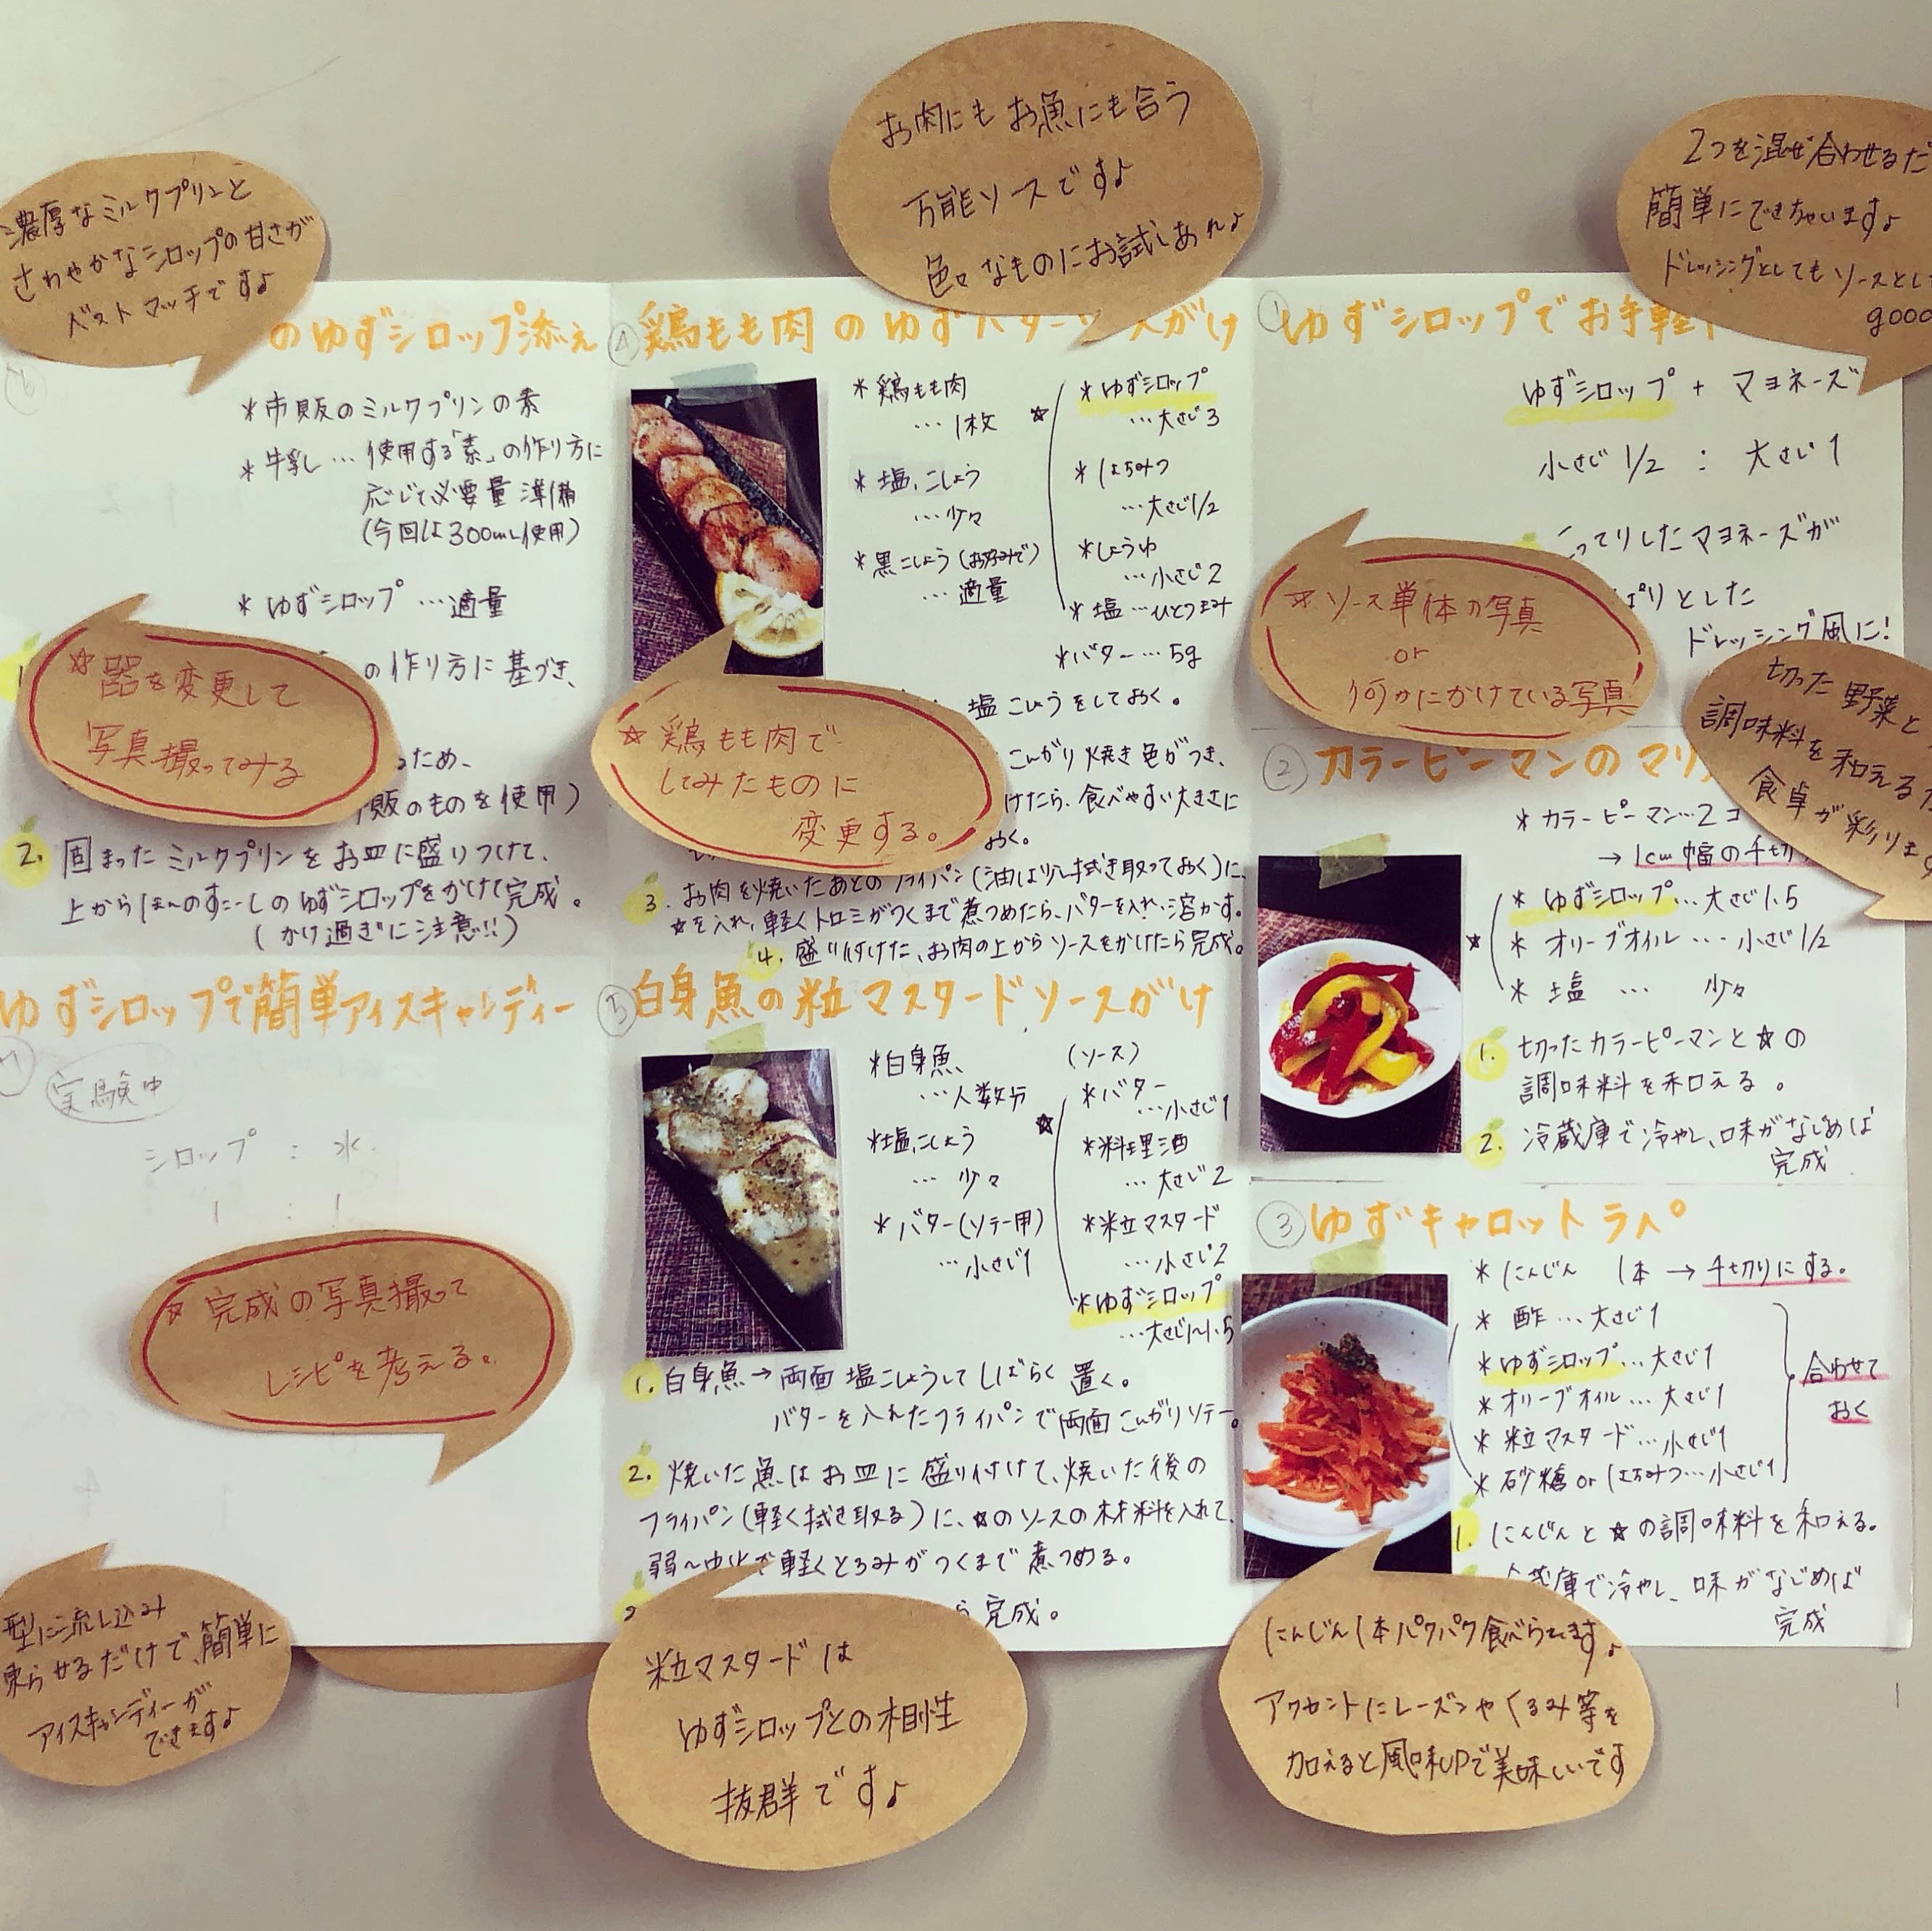 濃厚なミルクプリンと
さわやかなシロップの甘さが
ベストマッチですよ
のゆずシロップ添え
⑥
*市販のミルクプリンの素
*牛乳…使用する「素」の作り方に
応じて必要量 準備
(今回は300mL使用)
*ゆずシロップ …適量
の作り方に基づき、
☆器を変更して
写真撮ってみる
ため、
販のものを使用)
2. 固まったミルクプリンをお皿に盛りつけて、
上からほんのすこーしのゆずシロップをかけて完成。
(かけ過ぎに注意!!)
ゆずシロップで簡単アイスキャンディー
⑦
実験中
シロップ : 水
1 : 1
☆完成の写真撮って
レシピを考える。
型に流し込み
凍らせるだけで、簡単に
アイスキャンディーが
できますよ
お肉にもお魚にも合う
万能ソースです♪
色々なものにお試しあれ♪
④鶏もも肉のゆずバターソースがけ
*鶏もも肉
…1枚
*塩、こしょう
…少々
*黒こしょう(お好みで)
…適量
☆
*ゆずシロップ
…大さじ3
*はちみつ
…大さじ1/2
*しょうゆ
…小さじ2
*塩…ひとつまみ
*バター…5g
塩こしょうをしておく。
こんがり焼き色がつき、
けたら、食べやすい大きさに
おく。
☆鶏もも肉で
してみたものに
変更する。
3. お肉を焼いたあとのフライパン(油は少し拭き取っておく)に、
☆を入れ、軽くトロミがつくまで煮つめたら、バターを入れ、溶かす。
4. 盛り付けた、お肉の上からソースをかけたら完成。
⑤白身魚の粒マスタードソースがけ
*白身魚
…人数分
*塩、こしょう
… 少々
*バター(ソテー用)
…小さじ1
(ソース)
☆
*バター
…小さじ1
*料理酒
…大さじ2
*粒マスタード
…小さじ2
*ゆずシロップ
…大さじ1~1.5
1. 白身魚→両面 塩こしょうしてしばらく置く。
バターを入れたフライパンで両面こんがりソテー。
2. 焼いた魚はお皿に盛り付けて、焼いた後の
フライパン(軽く拭き取る)に、☆のソースの材料を入れて、
弱~中火で軽くとろみがつくまで煮つめる。
完成。
粒マスタードは
ゆずシロップとの相性
抜群です♪
2つを混ぜ合わせるだ
簡単にできちゃいます♪
ドレッシングとしてもソースとし
good
①ゆずシロップでお手軽
ゆずシロップ + マヨネーズ
小さじ1/2 : 大さじ1
こってりしたマヨネーズが
ぱりとした
ドレッシング風に!
☆ソース単体の写真
or
何かにかけている写真
切った野菜と
調味料を和える
食卓が彩りま
②カラーピーマンのマリ
*カラーピーマン…2コ
→1cm幅の千切
☆
*ゆずシロップ…大さじ1.5
*オリーブオイル…小さじ1/2
*塩 … 少々
1. 切ったカラーピーマンと☆の
調味料を和える。
2. 冷蔵庫で冷やし、味がなじめば
完成
③ゆずキャロットラペ
*にんじん 1本→千切りにする。
*酢…大さじ1
*ゆずシロップ…大さじ1
*オリーブオイル…大さじ1
*粒マスタード…小さじ1
*砂糖orはちみつ…小さじ1
合わせて
おく
1. にんじんと☆の調味料を和える。
蔵庫で冷やし、味がなじめば
完成
にんじん1本パクパク食べられます♪
アクセントにレーズンやくるみ等を
加えると風味UPで美味しいです